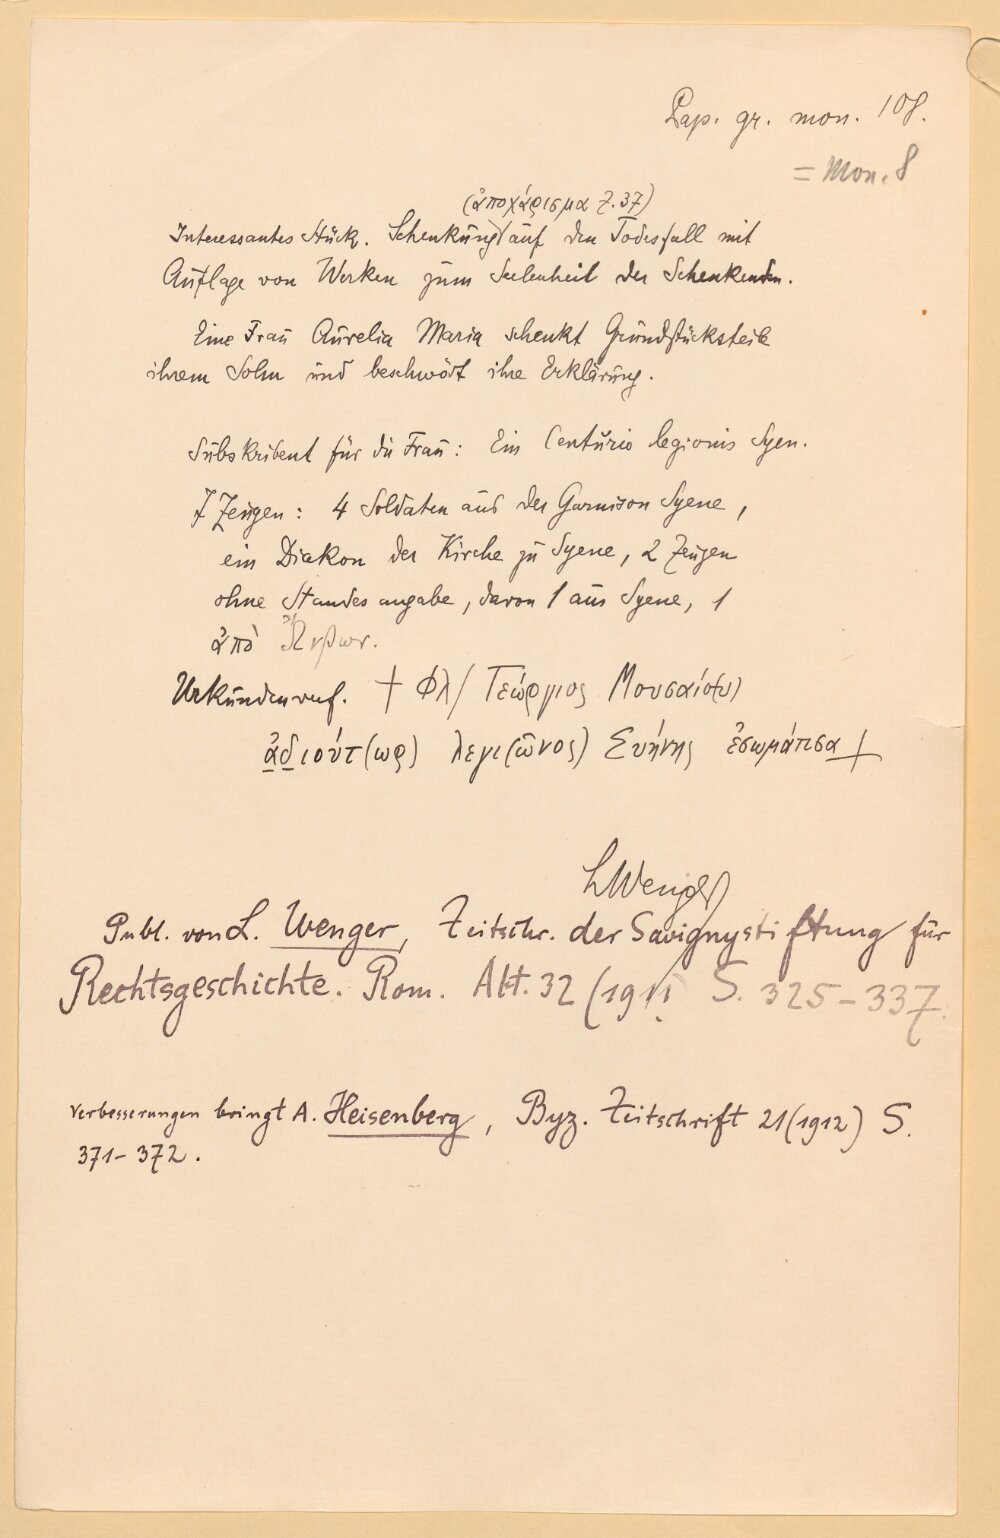 Pap. gr. mon. 108.
= Mon. 8
(ἀποχάρισμα Z. 37)
Interessantes Stück. Schenkung auf den Todesfall mit
Auflage von Werken zum Seelenheil der Schenkenden.
Eine Frau Aurelia Maria schenkt Grundstücksteile
ihrem Sohn und beschwört ihre Erklärung.
Subskribent für die Frau: Ein Centurio legionis Syen.
7 Zeugen: 4 Soldaten aus der Garnison Syene,
ein Diakon der Kirche zu Syene, 2 Zeugen
ohne Standesangabe, davon 1 aus Syene, 1
ἀπὸ
Urkundenverf. † Φλ/ Γεώργιος Μουσαίο(υ)
ἀδιούτ(ωρ) λεγι(ῶνος) Συήνης ἐσωμάτισα †
LWenger
Publ. von L. Wenger, Zeitschr. der Savignystiftung für
Rechtsgeschichte. Rom. Abt. 32 (1911) S. 325-337.
Verbesserungen bringt A. Heisenberg, Byz. Zeitschrift 21 (1912) S.
371-372.